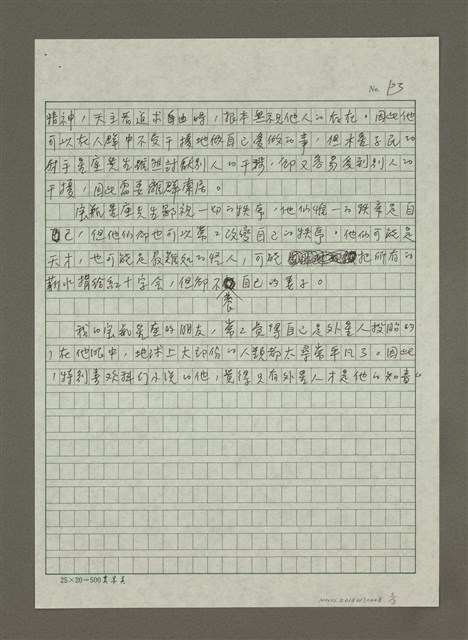 No. 13
精神，天王星追求自由時，根本無視他人的存在。因此他
可以在人群中不受干擾地做自己愛做的事，但木星子民的
射手星座者雖然討厭別人的干擾，卻又容易受到別人的
干擾，因此需要離群索居。
寶瓶星座者鄙視一切的秩序，他們唯一的秩序是自
己，但他們卻也可以常常改變自己的秩序。他們可能是
天才，也可能是最難處的怪人，可能把所有的
薪水捐給紅十字會，但卻不養自己的妻子。
我的寶瓶星座的朋友，常常覺得自己是外星人投胎的
，在他眼中，地球上大部份的人類都太尋常平凡了。因此
，特別喜歡科幻小說的他，覺得只有外星人才是他的知音。
25×20=500